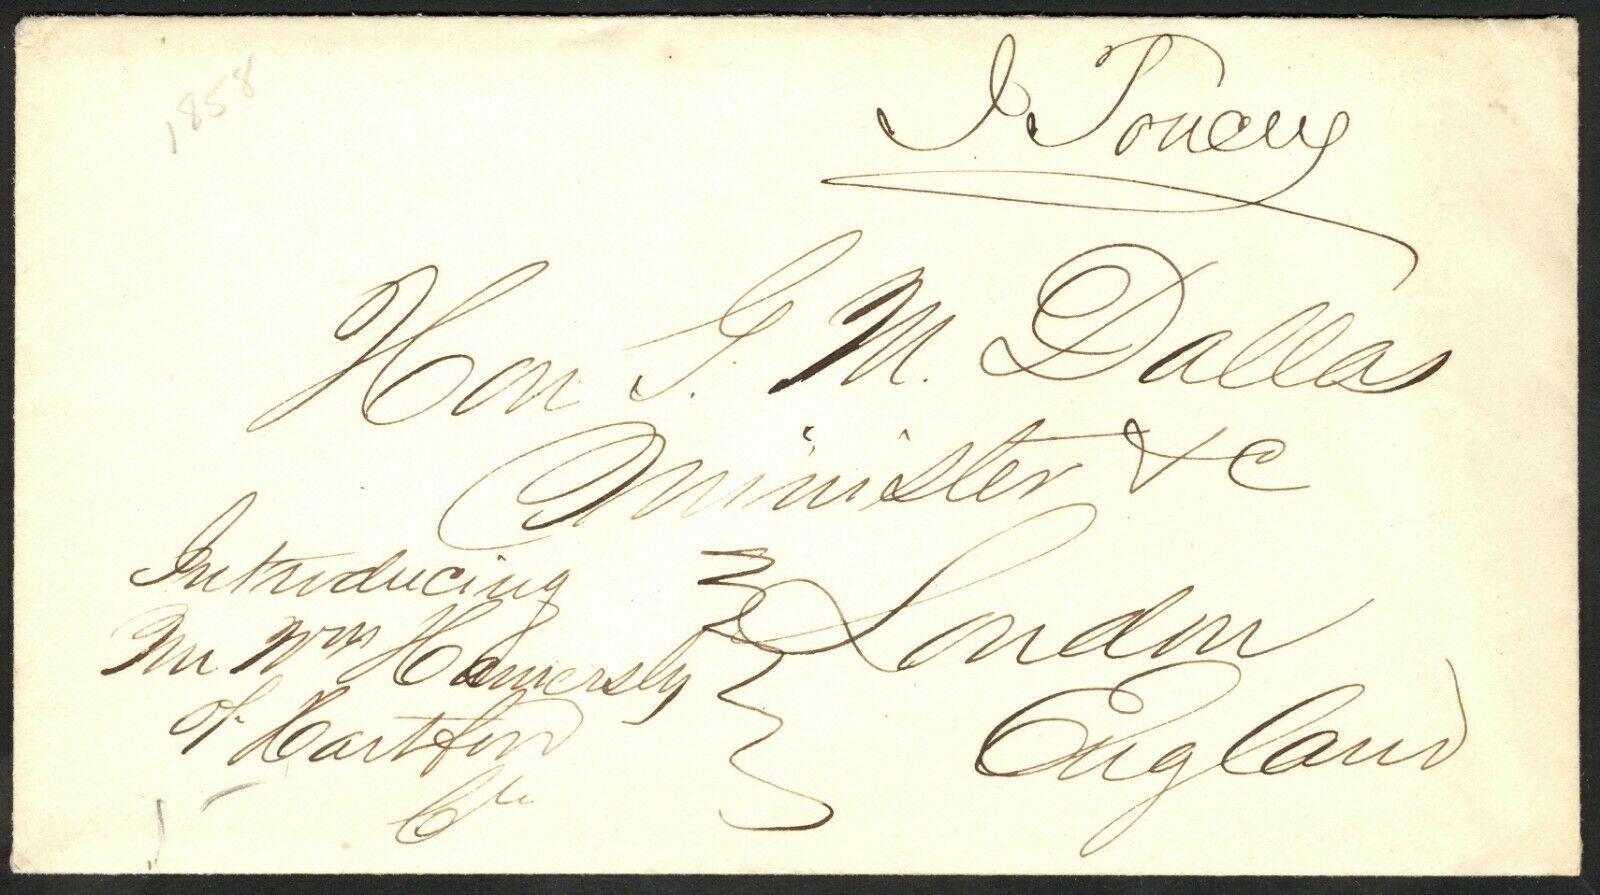 1858
I. Toucey
Hon G. M. Dallas
Minister &c
London
England
Introducing
Mr Wm Hamersly
of Hartford
Ct.